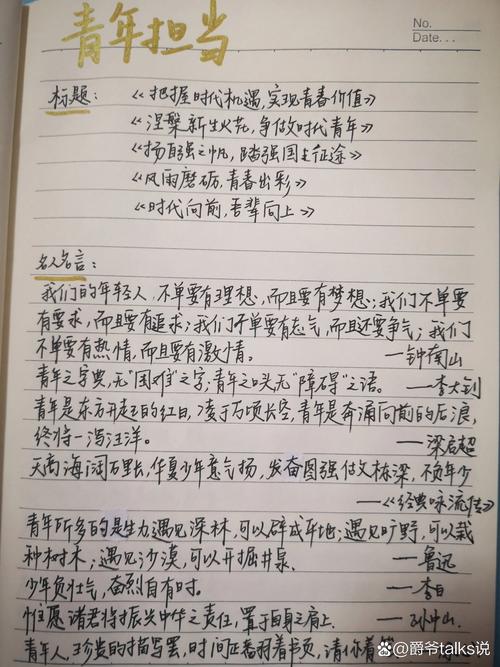 青年担当
No.
Date...
标题:
《把握时代机遇,实现青春价值》
《涅槃新生火花,争做时代青年》
《扬自强之帆,踏强国之征途》
《风雨磨砺,青春出彩》
《时代向前,吾辈向上》
名人名言:
我们的年轻人,不单要有理想,而且要有梦想;我们不单要
有要求,而且要有追求;我们不单要有志气,而且还要争气;我们
不单要有热情,而且要有激情。 —钟南山
青年之字典,无"困难"之字,青年之口头无"障碍"之语。 —李大钊
青年是东方升起的红日,凌于万顷长空,青年是奔涌向前的后浪,
终将一泻汪洋。 —梁启超
天高海阔万里长,华夏少年意气扬,发奋图强做栋梁,不负年少
—《经典咏流传》
青年所多的是生力,遇见深林,可以辟成平地;遇见旷野,可以栽
种树木;遇见沙漠,可以开掘井泉。 —鲁迅
少年负壮气,奋烈自有时。 —李白
惟愿诸君将振兴中华之责任,置于自身之肩上。 —孙中山
青年人,珍贵的描写罢,时间正翻着书页,请你着
爵爷talks说